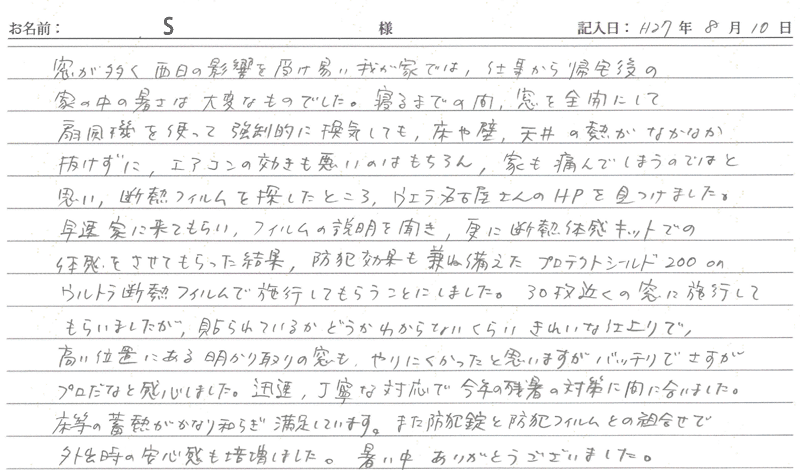 お名前： S 様 記入日：H27年 8月 10日
窓が多く西日の影響を受け易い我が家では、仕事から帰宅後の
家の中の暑さは大変なものでした。寝るまでの間、窓を全開にして
扇風機を使って強制的に換気しても、床や壁、天井の熱がなかなか
抜けずに、エアコンの効きも悪いのはもちろん、家も痛んでしまうのではと
思い、断熱フィルムを探したところ、ヴェラ名古屋さんのHPを見つけました。
早速家に来てもらい、フィルムの説明を聞き、更に断熱体感キットでの
体感をさせてもらった結果、防犯効果も兼ね備えたプロテクトシールド200 on
ウルトラ断熱フィルムで施行してもらうことにしました。30枚近くの窓に施行して
もらいましたが、貼られているかどうかわからないくらいきれいな仕上りで、
高い位置にある明かり取りの窓も、やりにくかったと思いますがバッチリでさすが
プロだなと感心しました。迅速、丁寧な対応で今年の残暑の対策に間に合いました。
床等の蓄熱がかなり和らぎ満足しています。また防犯錠と防犯フィルムとの組合せで
外出時の安心感も倍増しました。暑い中ありがとうございました。